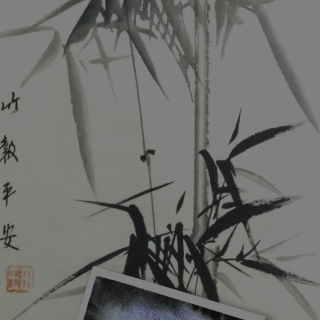 竹報平安